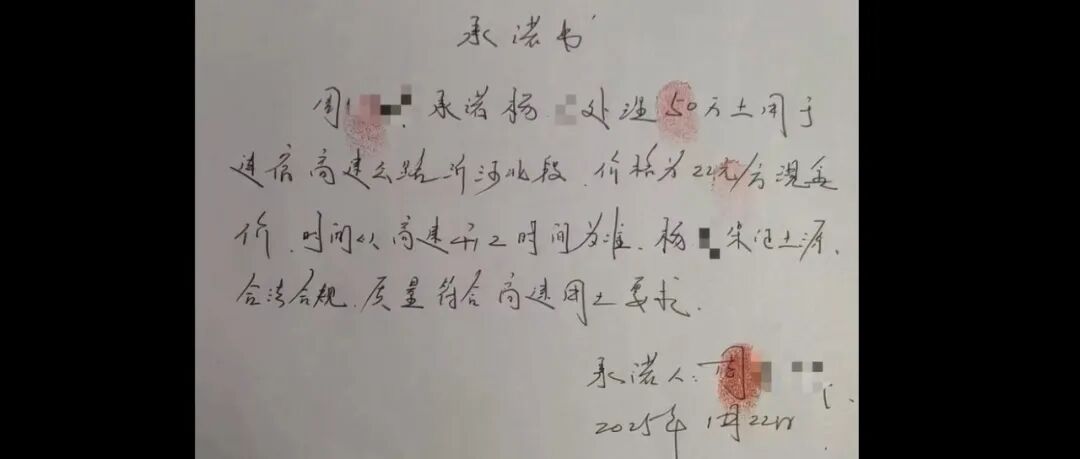 承诺书
周 承诺杨 处理50万土用于
连宿高速公路沂河北段.价格为22元/方现金
价.时间以高速开工时间为准.杨 保证土源.
合法合规.质量符合高速用土要求.
承诺人:周
2025年1月22日